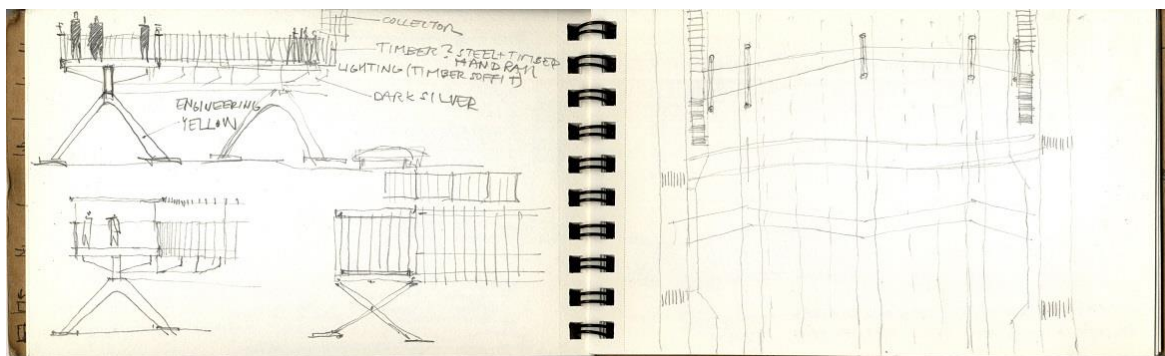 COLLECTOR
TIMBER? STEEL+TIMBER
HANDRAIL
LIGHTING (TIMBER SOFFIT)
DARK SILVER
ENGINEERING
YELLOW